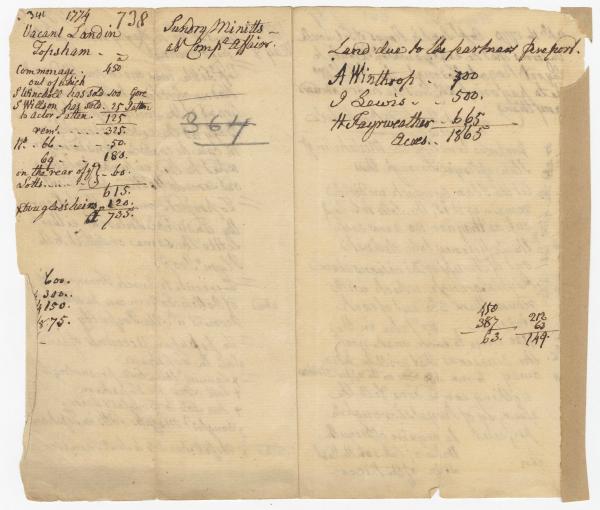 341 1774 738
Vacant Land in
Topsham
a
Commonage 450
out of which
J Winchell has sold 100 Gore
J Willson has sold 25 Patten
to actor Patten 125
rem. 325
No. 66 50
69 180
on the rear of ye 60
Lotts
615
Duglass heirs 120
735
600
300
150
875
Sundry Minitts
abt Compa Affairs
364
Land due to the partners pr report
A Winthrop 700
J Lewis 500
H Fayrweather 665
Acres 1865
450
387
63
212
63
149